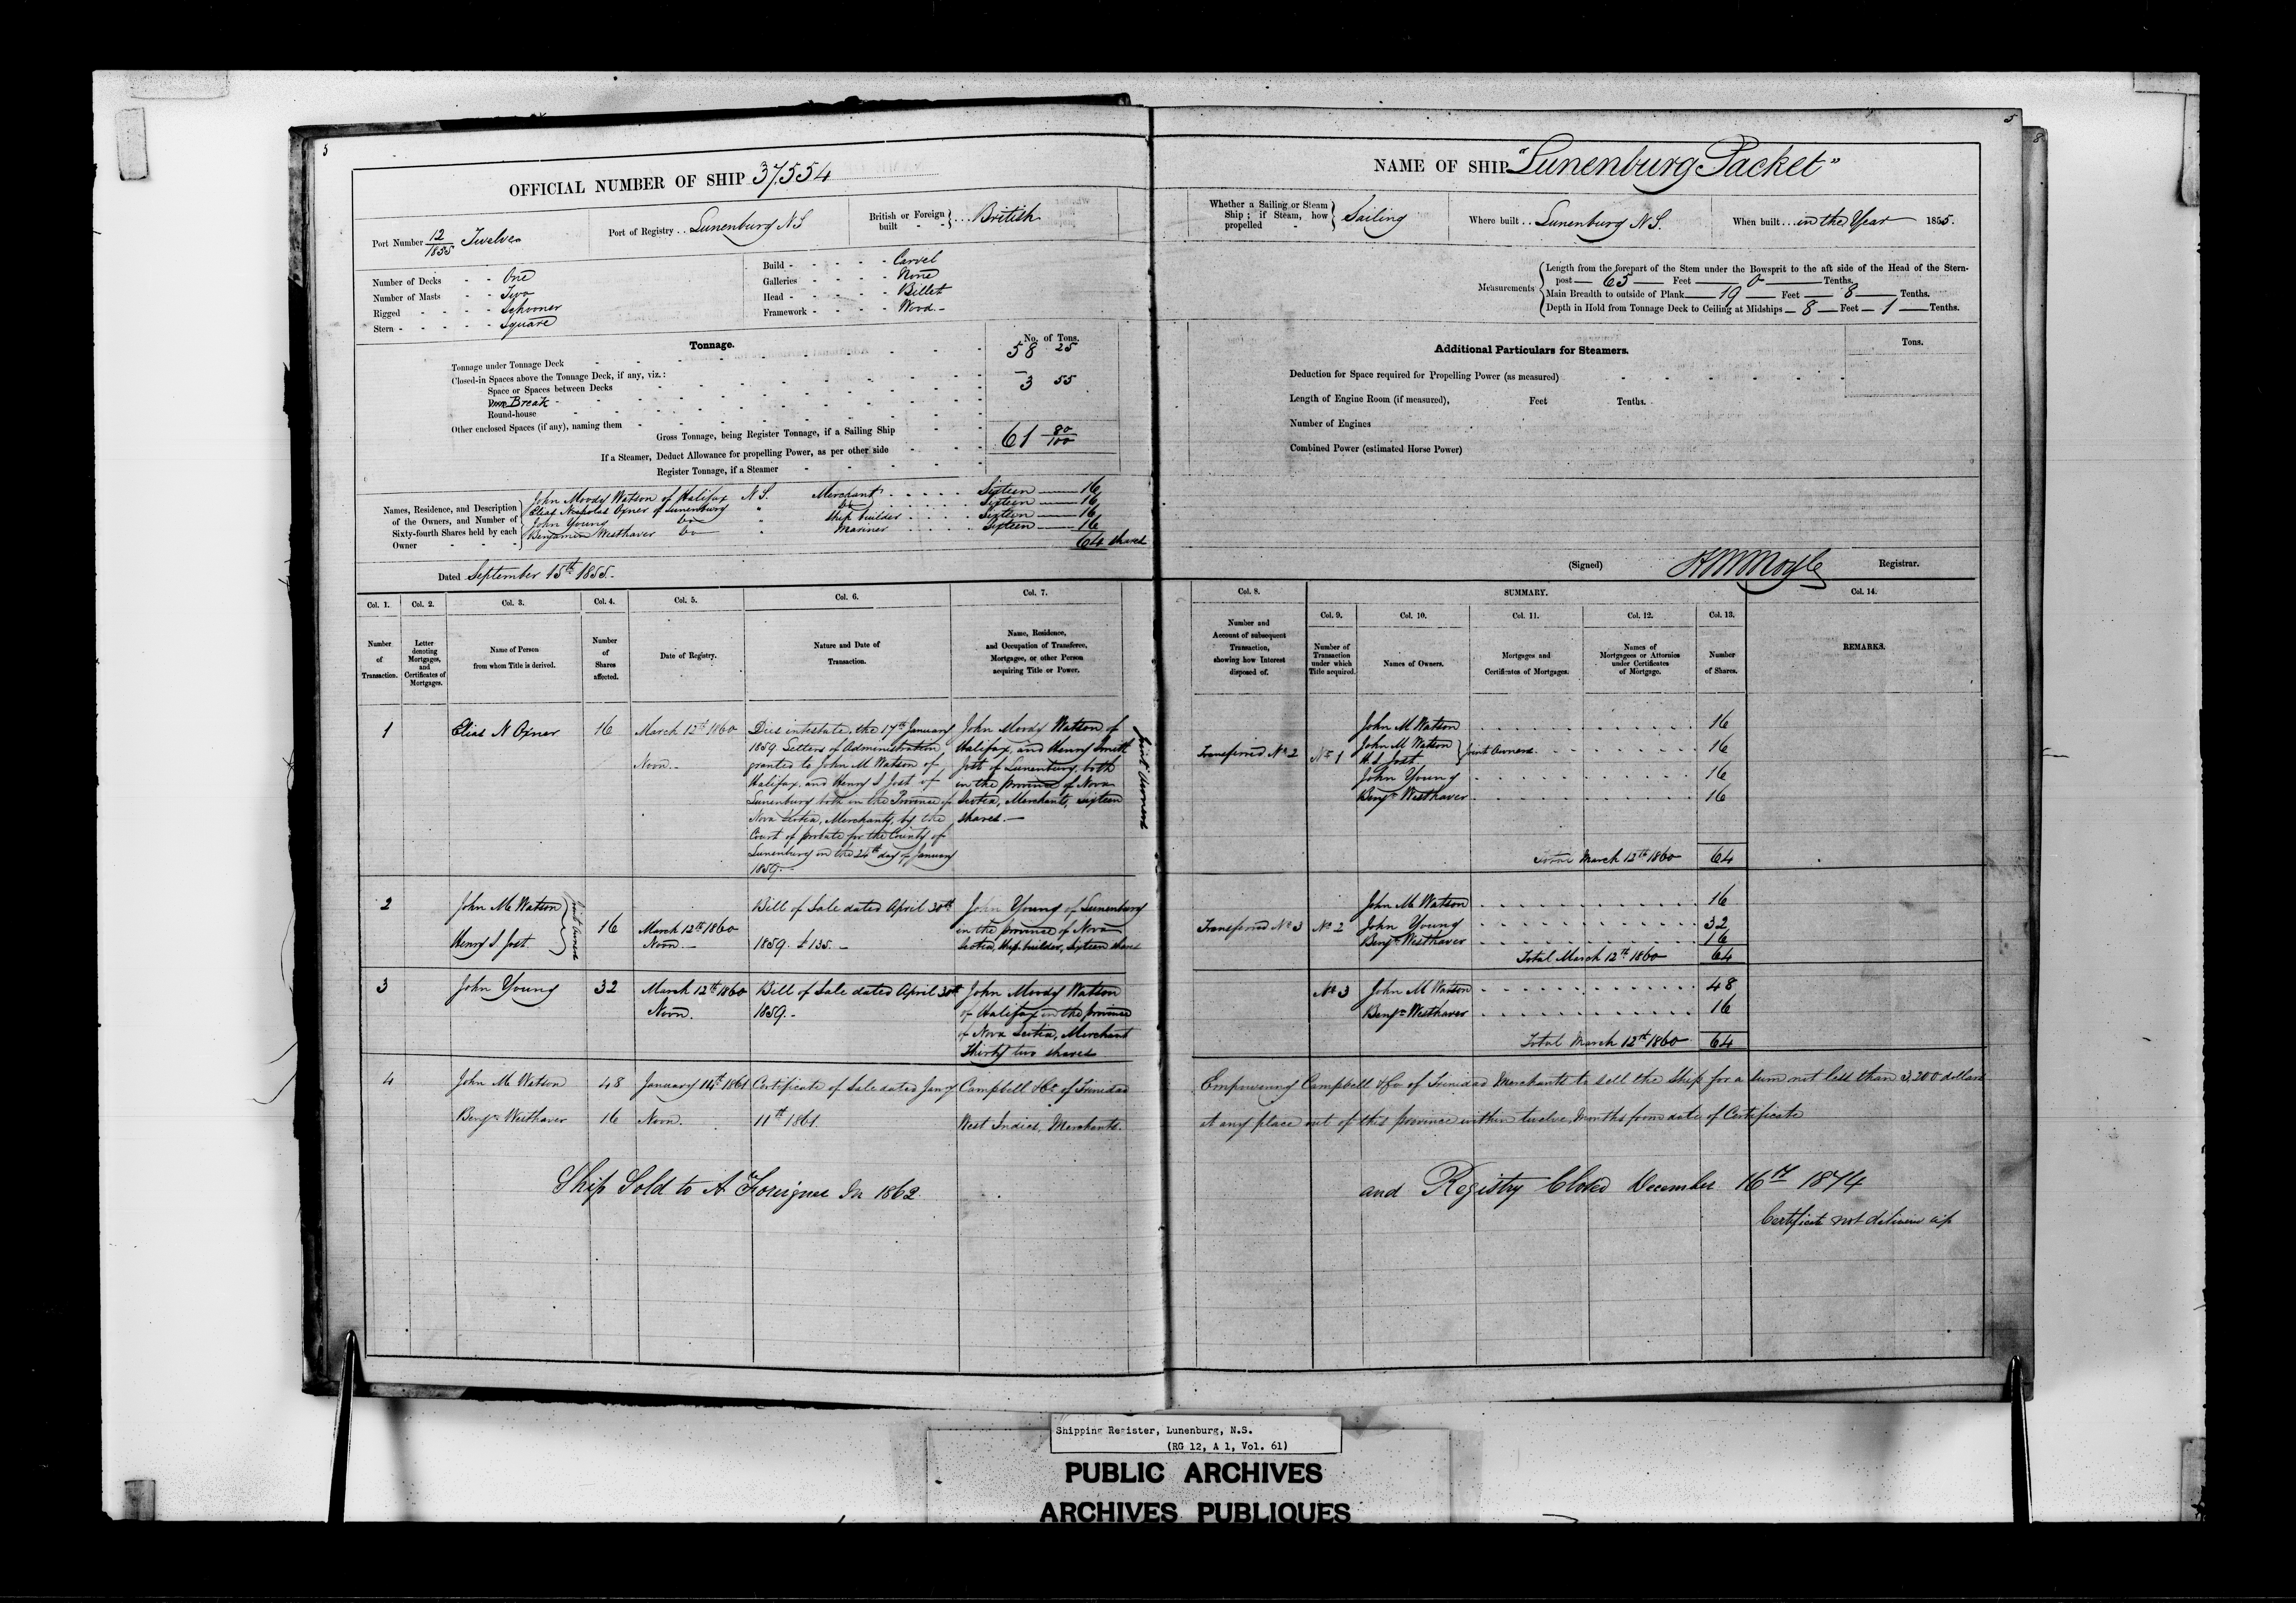 5
5
8
OFFICIAL NUMBER OF SHIP 37554
Port Number 12/1855 Twelve
Port of Registry .. Lunenburg N S
British or Foreign built } ... British
Number of Decks - - One
Number of Masts - - Two
Rigged - - - - Schooner
Stern - - - - - Square
Build - - - - - Carvel
Galleries - - - - None
Head - - - - - Billet
Framework - - - - Wood. -
Tonnage.
No. of Tons.
Tonnage under Tonnage Deck 58 25
Closed-in Spaces above the Tonnage Deck, if any, viz.: -
Space or Spaces between Decks 3 55
Poop Break
Round-house
Other enclosed Spaces (if any), naming them
Gross Tonnage, being Register Tonnage, if a Sailing Ship 61 80/100
If a Steamer, Deduct Allowance for propelling Power, as per other side
Register Tonnage, if a Steamer
Names, Residence, and Description of the Owners, and Number of Sixty-fourth Shares held by each Owner
John Moody Watson of Halifax N S. Merchant . . . . . Sixteen — 16
Elias Nicholas Oxner of Lunenburg " Do . . . . . Sixteen — 16
John Young Do " Ship builder . . . . Sixteen — 16
Benjamin Westhaver Do " Mariner . . Sixteen — 16
64 shares
Dated September 15th 1855.
NAME OF SHIP "Lunenburg Packet"
Whether a Sailing or Steam Ship; if Steam, how propelled } Sailing
Where built .. Lunenburg N.S.
When built ... in the Year 1855.
Measurements
Length from the forepart of the Stem under the Bowsprit to the aft side of the Head of the Stern-
post — 65 — Feet — 0 — Tenths.
Main Breadth to outside of Plank — 19 — Feet — 8 — Tenths.
Depth in Hold from Tonnage Deck to Ceiling at Midships — 8 — Feet — 1 — Tenths.
Additional Particulars for Steamers.
Tons.
Deduction for Space required for Propelling Power (as measured)
Length of Engine Room (if measured), Feet Tenths.
Number of Engines
Combined Power (estimated Horse Power)
(Signed) Registrar.
Col. 1. Col. 2. Col. 3. Col. 4. Col. 5. Col. 6. Col. 7.
Number of Transaction.
Letter denoting Mortgages, and Certificates of Mortgages.
Name of Person from whom Title is derived.
Number of Shares affected.
Date of Registry.
Nature and Date of Transaction.
Name, Residence, and Occupation of Transferee, Mortgagee, or other Person acquiring Title or Power.
Col. 8. SUMMARY. Col. 14.
Col. 9. Col. 10. Col. 11. Col. 12. Col. 13.
Number and Account of subsequent Transaction, showing how Interest disposed of.
Number of Transaction under which Title acquired.
Names of Owners.
Mortgages and Certificates of Mortgages.
Names of Mortgagees or Attornies under Certificates of Mortgage.
Number of Shares.
REMARKS.
1 Elias N Oxner 16 March 12th 1860
Noon. -
Dies intestate, the 17th January
1859. Letters of Administration
granted to John M Watson of
Halifax, and Henry S Jost of
Lunenburg both in the Province of
Nova Scotia, Merchants, by the
Court of probate for the County of
Lunenburg on the 24th day of January
1859.
John Moody Watson of
Halifax, and Henry Smith
Jost of Lunenburg both
in the province of Nova
Scotia, Merchants, sixteen
shares. —
Joint Owners
Transferred No 2 No 1
John M Watson 16
John M Watson
H. S. Jost } Joint Owners. 16
John Young 16
Benjn Westhaver 16
Total March 12th 1860 64
2 John M Watson
Henry S Jost
Joint Owners
16 March 12th 1860
Noon. -
Bill of Sale dated April 30th
1859. £135. -
John Young of Lunenburg
in the province of Nova
Scotia, Ship builder, Sixteen shares
Transferred No 3 No 2
John M Watson 16
John Young 32
Benjn Westhaver 16
Total March 12th 1860 64
3 John Young 32 March 12th 1860
Noon.
Bill of Sale dated April 30th
1859. -
John Moody Watson
of Halifax in the province
of Nova Scotia, Merchant
Thirty two shares
No 3 John M Watson 48
Benjn Westhaver 16
Total March 12th 1860 64
4 John M Watson 48 January 14th 1861 Certificate of Sale dated Jany Campbell & Co of Trinidad
Benjn Westhaver 16 Noon. 11th 1861. West Indies, Merchants.
Empowering Campbell & Co of Trinidad Merchants to sell the Ship for a sum not less than 3,200 dollars
at any place out of this province within twelve Months from date of Certificate
Ship Sold to A Foreigner In 1862
and Registry Closed December 16th 1874
Certificate not deliver up
Shipping Register, Lunenburg, N.S.
(RG 12, A 1, Vol. 61)
PUBLIC ARCHIVES
ARCHIVES PUBLIQUES